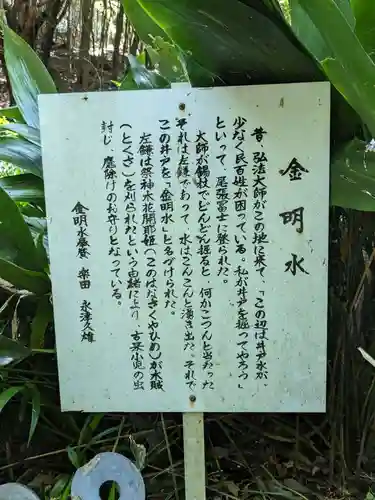 金明水
昔、弘法大師がこの地に来て、「この辺は井戸水が、
少なく民百姓が困っている。私が井戸を掘ってやろう」
といって、尾張富士に登られた。
大師が錫杖でどんどん掘ると、何かこつんと当たった
それは左鎌で、水はこんこんと湧き出た。それで
この井戸を「金明水」と名づけられた。
左鎌は祭神木花開耶姫(このはなさくやひめ)が木賊
(とくさ)を刈られたという由緒により、古来小児の虫
封じ、魔除けのお守りとなっている。
金明水 楽田 永津久雄